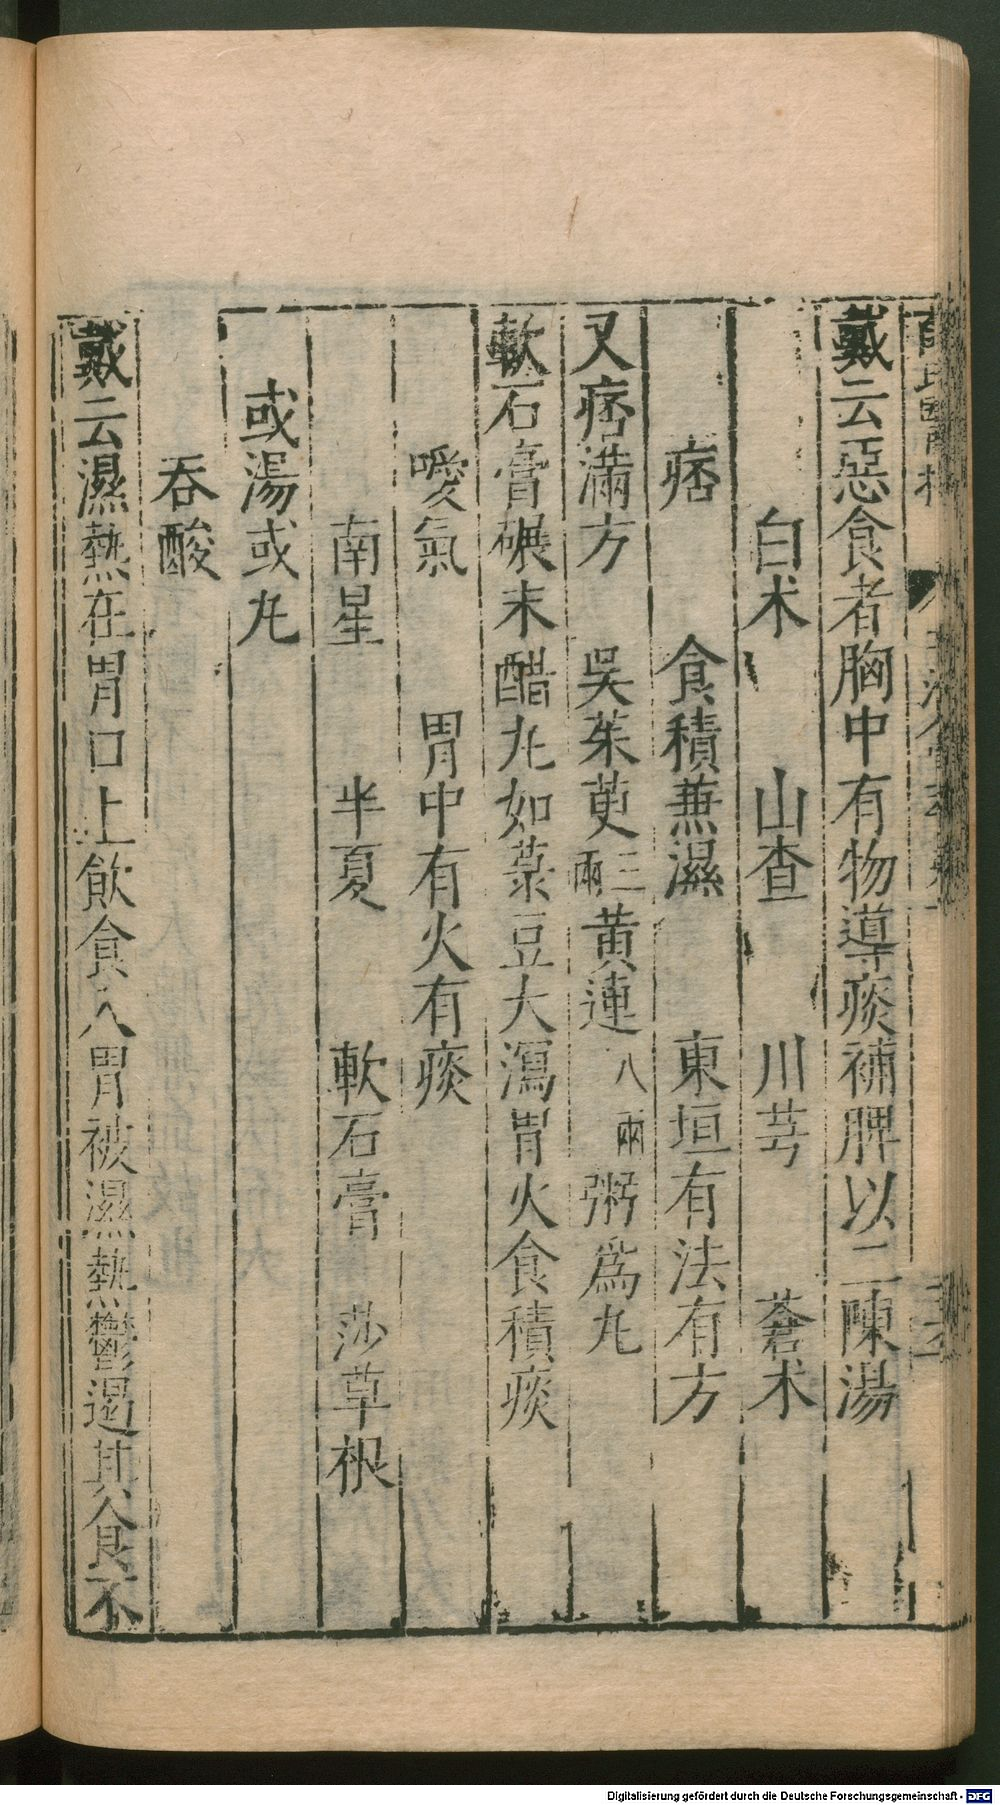 戴云惡食者胸中有物導痰補脾以二陳湯
白朮 山查 川芎 蒼朮
痞 食積兼濕 東垣有法有方
又痞滿方 吳茱萸三兩 黃連八兩 粥爲丸
軟石膏碾末醋丸如菉豆大瀉胃火食積痰
噯氣 胃中有火有痰
南星 半夏 軟石膏 莎草根
或湯或丸
吞酸
戴云濕熱在胃口上飲食入胃被濕熱鬱遏其食不
Digitalisierung gefördert durch die Deutsche Forschungsgemeinschaft - DFG